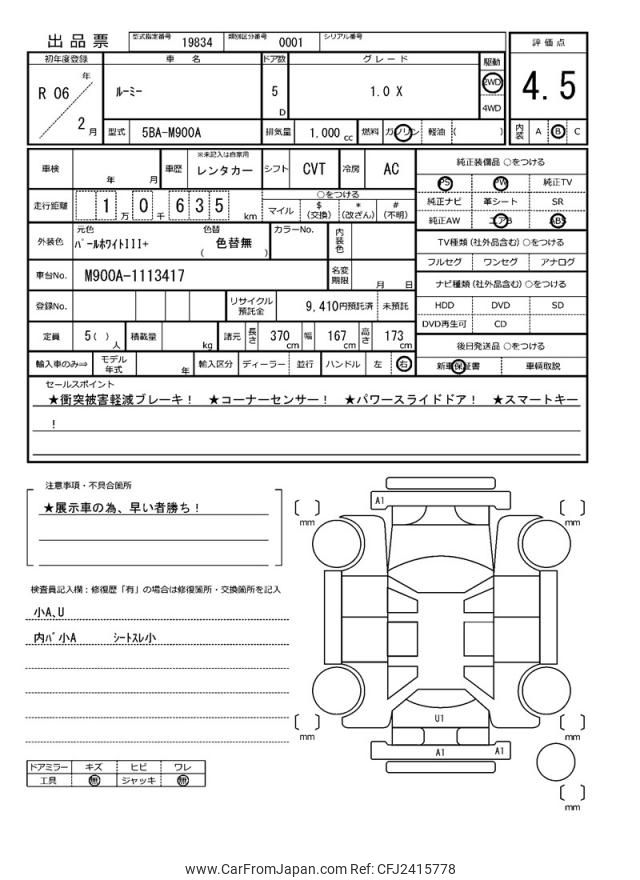 出品票 型式指定番号 19834 類別区分番号 0001 シリアル番号
初年度登録 車名 ドア数 グレード 駆動 評価点
R 06 年 2 月 ルーミー 5 D 1.0 X 2WD 4WD 4.5
型式 5BA-M900A 排気量 1.000 cc 燃料 ガソリン 軽油 ( ) 内装 A B C
車検 年 月 車歴 ※未記入は自家用 レンタカー シフト CVT 冷房 AC 純正装備品 ○をつける
PS PW 純正TV
走行距離 1 万 0 千 6 3 5 km ○をつける 純正ナビ 革シート SR
マイル $ (交換) * (改ざん) # (不明) 純正AW エアB ABS
外装色 元色 パールホワイトIII+ 色替 ( 色替無 ) カラーNo. 内装色 TV種類 (社外品含む) ○をつける
フルセグ ワンセグ アナログ
車台No. M900A-1113417 名変期限 月 日 ナビ種類 (社外品含む) ○をつける
登録No. リサイクル預託金 9,410円預託済 未預託 HDD DVD SD
DVD再生可 CD
定員 5 ( ) 人 積載量 kg 諸元 長さ 370 cm 幅 167 cm 高さ 173 cm 後日発送品 ○をつける
輸入車のみ⇒ モデル年式 年 輸入区分 ディーラー 並行 ハンドル 左 右 新車保証書 車輌取説
セールスポイント
★衝突被害軽減ブレーキ! ★コーナーセンサー! ★パワースライドドア! ★スマートキー
!
注意事項・不具合箇所
★展示車の為、早い者勝ち!
検査員記入欄:修復歴「有」の場合は修復箇所・交換箇所を記入
小A、U
内バ小A シートスレ小
ドアミラー キズ ヒビ ワレ
工具 無 ジャッキ 無
A1
mm
mm
U1
A1 A1
mm
mm
mm
www.CarFromJapan.com Ref: CFJ2415778